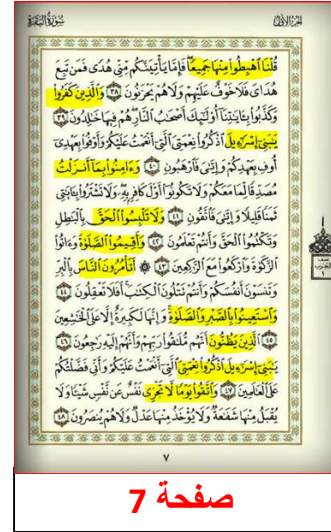 الجزء الأول
سورة البقرة
قُلْنَا ٱهْبِطُوا۟ مِنْهَا جَمِيعًا فَإِمَّا يَأْتِيَنَّكُم مِّنِّى هُدًى فَمَن تَبِعَ
هُدَاىَ فَلَا خَوْفٌ عَلَيْهِمْ وَلَا هُمْ يَحْزَنُونَ ٣٨ وَٱلَّذِينَ كَفَرُوا۟
وَكَذَّبُوا۟ بِـَٔايَـٰتِنَآ أُو۟لَـٰٓئِكَ أَصْحَـٰبُ ٱلنَّارِ هُمْ فِيهَا خَـٰلِدُونَ ٣٩
يَـٰبَنِىٓ إِسْرَٰٓءِيلَ ٱذْكُرُوا۟ نِعْمَتِىَ ٱلَّتِىٓ أَنْعَمْتُ عَلَيْكُمْ وَأَوْفُوا۟ بِعَهْدِىٓ
أُوفِ بِعَهْدِكُمْ وَإِيَّـٰىَ فَٱرْهَبُونِ ٤٠ وَءَامِنُوا۟ بِمَآ أَنزَلْتُ
مُصَدِّقًا لِّمَا مَعَكُمْ وَلَا تَكُونُوٓا۟ أَوَّلَ كَافِرٍۭ بِهِۦ وَلَا تَشْتَرُوا۟ بِـَٔايَـٰتِى
ثَمَنًا قَلِيلًا وَإِيَّـٰىَ فَٱتَّقُونِ ٤١ وَلَا تَلْبِسُوا۟ ٱلْحَقَّ بِٱلْبَـٰطِلِ
وَتَكْتُمُوا۟ ٱلْحَقَّ وَأَنتُمْ تَعْلَمُونَ ٤٢ وَأَقِيمُوا۟ ٱلصَّلَوٰةَ وَءَاتُوا۟
ٱلزَّكَوٰةَ وَٱرْكَعُوا۟ مَعَ ٱلرَّٰكِعِينَ ٤٣ ۞ أَتَأْمُرُونَ ٱلنَّاسَ بِٱلْبِرِّ
وَتَنسَوْنَ أَنفُسَكُمْ وَأَنتُمْ تَتْلُونَ ٱلْكِتَـٰبَ أَفَلَا تَعْقِلُونَ ٤٤
وَٱسْتَعِينُوا۟ بِٱلصَّبْرِ وَٱلصَّلَوٰةِ وَإِنَّهَا لَكَبِيرَةٌ إِلَّا عَلَى ٱلْخَـٰشِعِينَ
٤٥ ٱلَّذِينَ يَظُنُّونَ أَنَّهُم مُّلَـٰقُوا۟ رَبِّهِمْ وَأَنَّهُمْ إِلَيْهِ رَٰجِعُونَ ٤٦
يَـٰبَنِىٓ إِسْرَٰٓءِيلَ ٱذْكُرُوا۟ نِعْمَتِىَ ٱلَّتِىٓ أَنْعَمْتُ عَلَيْكُمْ وَأَنِّى فَضَّلْتُكُمْ
عَلَى ٱلْعَـٰلَمِينَ ٤٧ وَٱتَّقُوا۟ يَوْمًا لَّا تَجْزِى نَفْسٌ عَن نَّفْسٍ شَيْـًٔا وَلَا
يُقْبَلُ مِنْهَا شَفَـٰعَةٌ وَلَا يُؤْخَذُ مِنْهَا عَدْلٌ وَلَا هُمْ يُنصَرُونَ ٤٨
نصف
الحزب
١
٧
صفحة 7